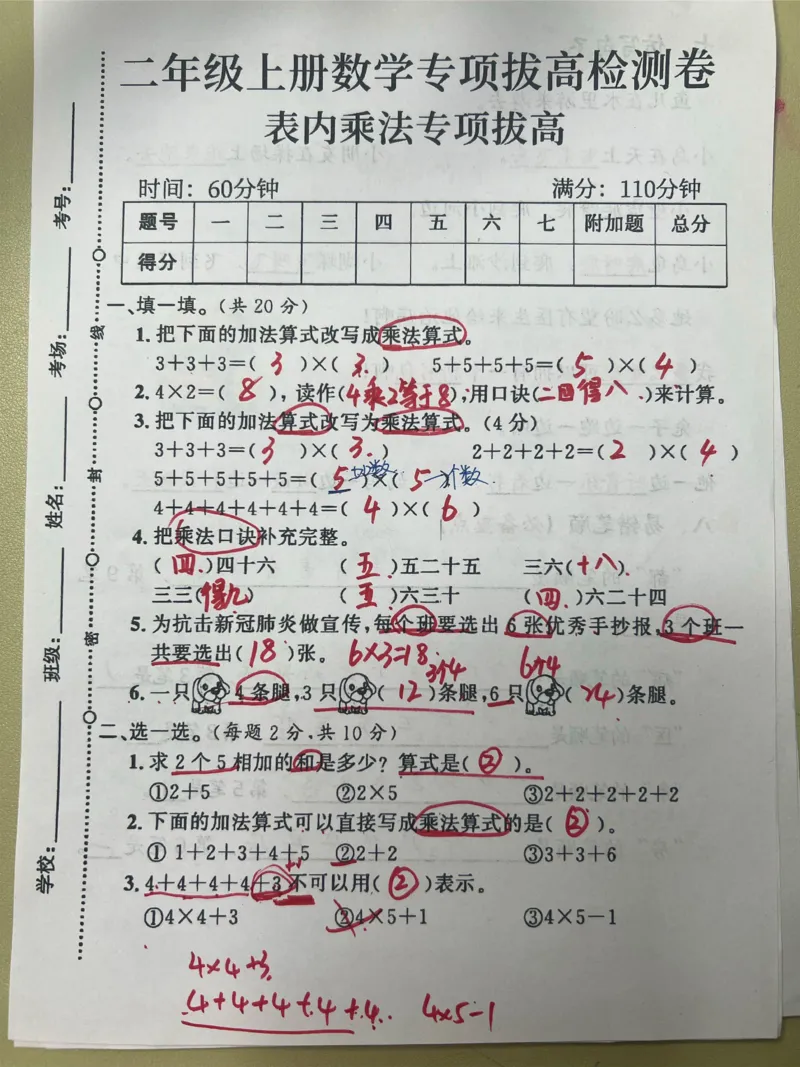 二年级上册数学专项拔高检测卷
表内乘法专项拔高
时间：60分钟 满分：110分钟
题号 一 二 三 四 五 六 七 附加题 总分
得分
学校： 班级： 姓名： 考场： 考号：
密 封 线
一、填一填。（共 20 分）
1. 把下面的加法算式改写成乘法算式。
3+3+3=( 3 )×( 3. ) 5+5+5+5=( 5 )×( 4 )
2. 4×2=( 8 )，读作(4乘2等于8),用口诀(二四得八.)来计算。
3. 把下面的加法算式改写为乘法算式。(4分)
3+3+3=( 3 )×( 3. ) 2+2+2+2=( 2 )×( 4 )
5+5+5+5+5=( 5 )×( 5 )个数.
4+4+4+4+4+4=( 4 )×( 6 )
4. 把乘法口诀补充完整。
( 四. )四十六 ( 五. )五二十五 三六(十八)
三三(得九) ( 五 )六三十 ( 四. )六二十四
5. 为抗击新冠肺炎做宣传,每个班要选出 6 张优秀手抄报,3 个班一
共要选出( 18 )张。 6×3=18. 3个4 6个4
6. 一只 4 条腿,3 只 ( 12 )条腿,6 只 ( 24 )条腿。
二、选一选。（每题 2 分,共 10 分）
1. 求 2 个 5 相加的和是多少？算式是( ② )。
①2+5 ②2×5 ③2+2+2+2+2
2. 下面的加法算式可以直接写成乘法算式的是( ② )。
① 1+2+3+4+5 ②2+2 ③3+3+6
+1
3. 4+4+4+4+3 不可以用( ② )表示。
①4×4+3 ②4×5+1 ③4×5−1
4×4+3.
4+4+4+4+4. 4×5-1